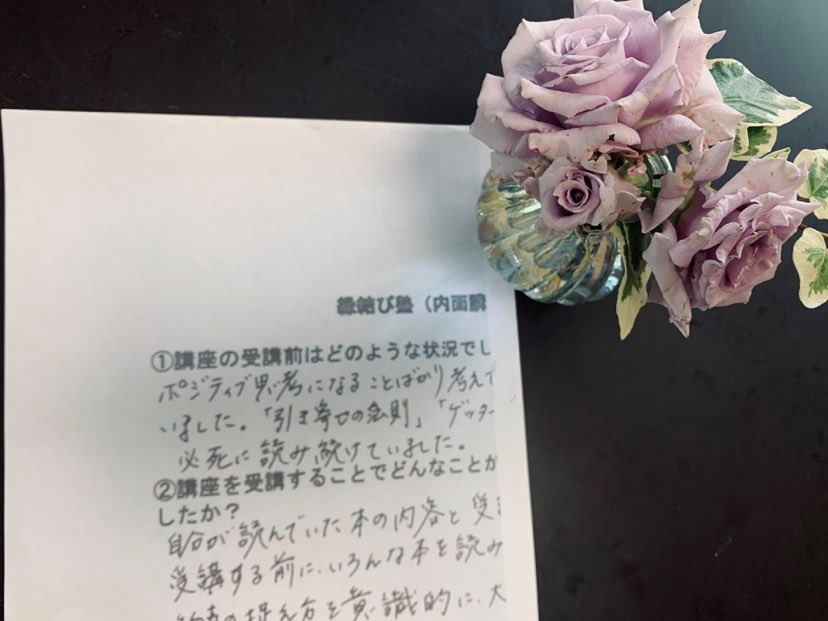 縁結び塾（内面講
①講座の受講前はどのような状況でし
ポジティブ思考になることばかり考えて
いました。「引き寄せの法則」「ゲッター
必死に読み続けていました。
②講座を受講することでどんなことが
したか？
自分が読んでいた本の内容と受
受講する前に、いろんな本を読み
の捉え方を意識的に、大